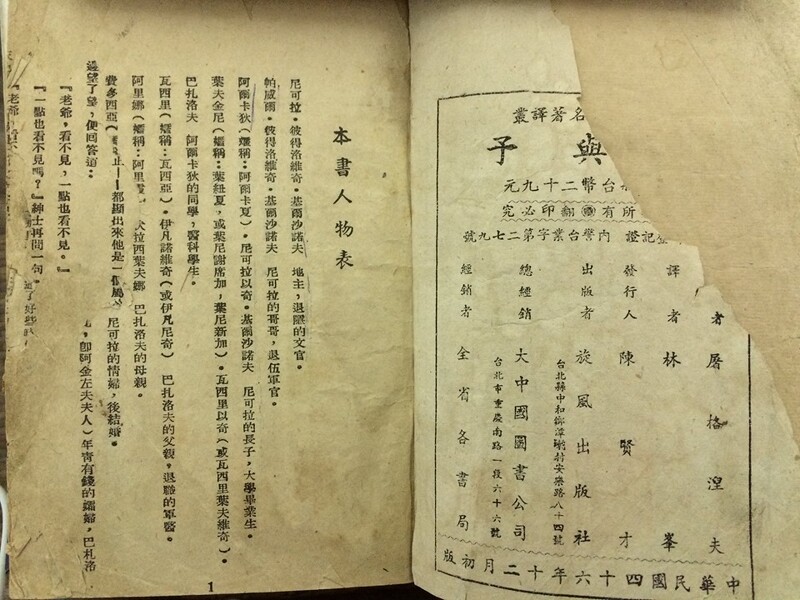 名著譯叢
與子
台幣二十九元
所有翻印必究
記證 內警台業字第二七九號
者 屠格涅夫
譯者 林峯
發行人 陳賢才
出版者 旋風出版社
台北縣中和鄉潭墘村安樂路八十四號
總經銷 大中國圖書公司
台北市重慶南路一段六十六號
經銷者 全省各書局
中華民國四十六年十二月初版
本書人物表
尼可拉・彼得洛維奇・基爾沙諾夫 地主,退職的文官。
帕威爾・彼得洛維奇・基爾沙諾夫 尼可拉的哥哥,退伍軍官。
阿爾卡狄(孃稱:阿爾卡夏)。尼可拉以奇・基爾沙諾夫 尼可拉的長子,大學畢業生。
葉夫金尼(孃稱:葉紐夏,或葉尼謝席加,葉尼新加)。瓦西里以奇(或瓦西里葉夫維奇)。
巴扎洛夫 阿爾卡狄的同學,醫科學生。
瓦西里(孃稱:瓦西亞)。伊凡諾維奇(或伊凡尼奇) 巴扎洛夫的父親,退職的軍醫。
阿里娜(孃稱:阿里 拉西葉夫娜 巴扎洛夫的母親。
費多西亞( 尼可拉的情婦,後結婚。
,卽阿金左夫夫人)年靑有錢的孀婦,巴札洛
止——都顯出來他是一個
邊望了望,便回答道:
『老爺,看不見,一點也看不見。』
『一點也看不見嗎?』紳士再問一句。
『老爺,
過了好些
1